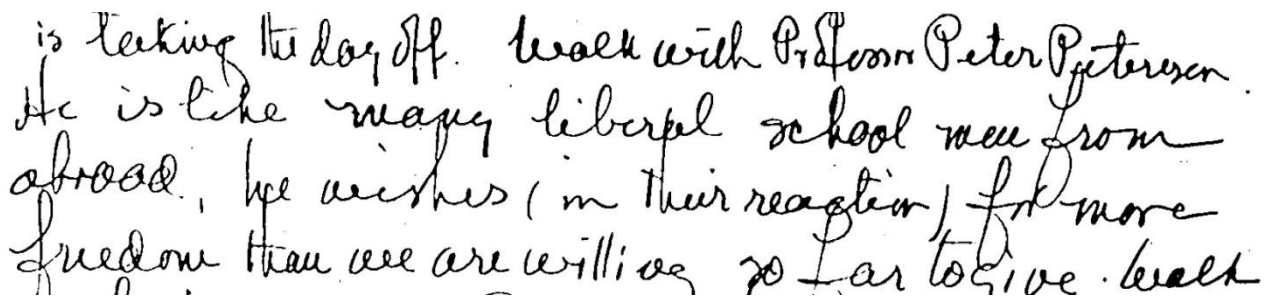 is taking the day off. Walk with Professor Peter Petersen.
He is like many liberal school men from
abroad, he wishes (in their reaction) for more
freedom than we are willing so far to give. Walk